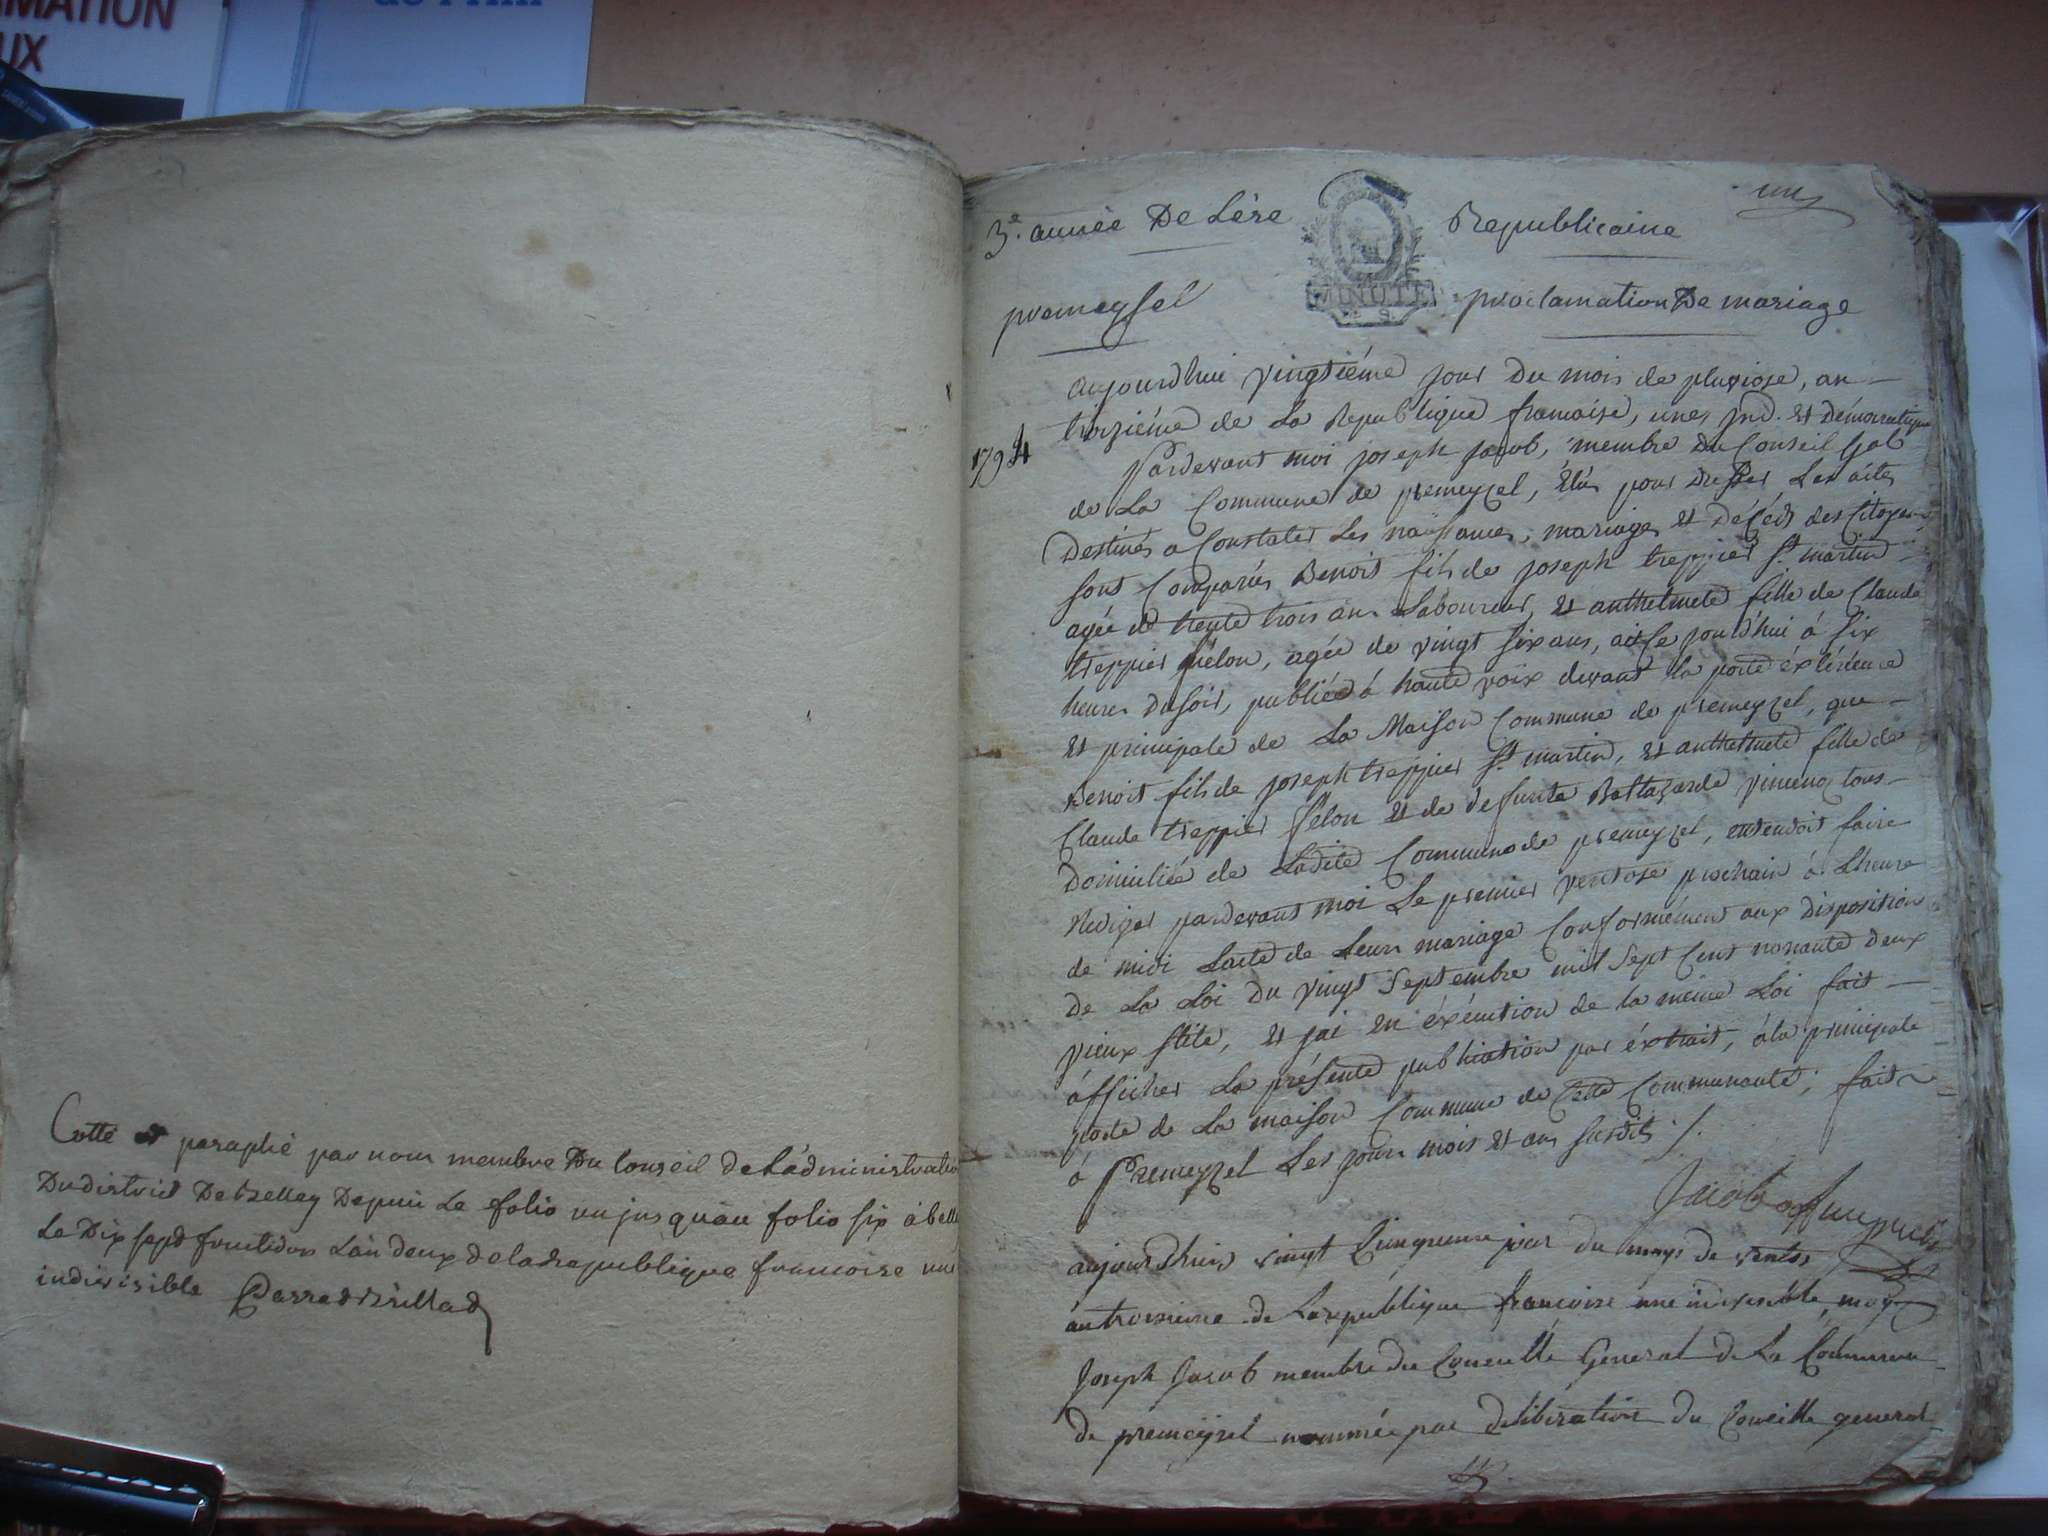 MATION
UX
Cotté et paraphé par nous membre Du Conseil de L'administratio
Du district De Belley Depuis Le folio un jusqu'au folio six à bell
Le Dix sept fructidor L'an deux de la republique francoise une
indivisible
un
3e. année De L'ére Republicaine
MINUTE
premeysel proclamation De mariage
aujourdhui vingtiéme jour Du mois de pluviose, an
troiziéme de La Republique francaise, une, ind. et démocratique
1794
Pardevant moi joseph jacob, membre Du Conseil Gal
de La Commune de premeyzel, élu pour Dresser Les actes
Destinés a Constater Les naissances, mariages et Décéds des Citoyens
sont Comparus Benoit fils de joseph treppier St. martin
agée de trente trois ans Laboureur, et anthelmete fille de Claude
treppier felon, agée de vingt six ans, ai ce jourd'hui à six
heures Du soir, publiée à haute voix devant la porte éxtérieure
et principale de La Maison Commune de premeyzel, que
Benoit fils de joseph treppier St martin, et anthelmete fille de
Claude treppier felon et de defunte Baltazarde vincenq tous
Domiciliée de Ladite Commune de premeyzel, entendoit faire
Rediger pardevant moi Le premier ventose prochain à L'heure
de midi L'acte de Leur mariage Conformément aux disposition
de La Loi Du vingt Septembre mil Sept Cent nonante deux
vieux stile, et jai en éxécution de la meme Loi fait
áfficher La présente publication par éxtrait, à la principale
porte de La maison Commune de Cette Communauté; fait
à Premeyzel Les jour mois et an susdits ./.
Jacob off. public
aujourdhuis vingt Cinquieme jour du moys de ventos
an troisieme de La republique francoise une indivisible, moy
Joseph Jacob membre du Conseille General de La Commune
de premeysel nommée par deliberation du Conseille general